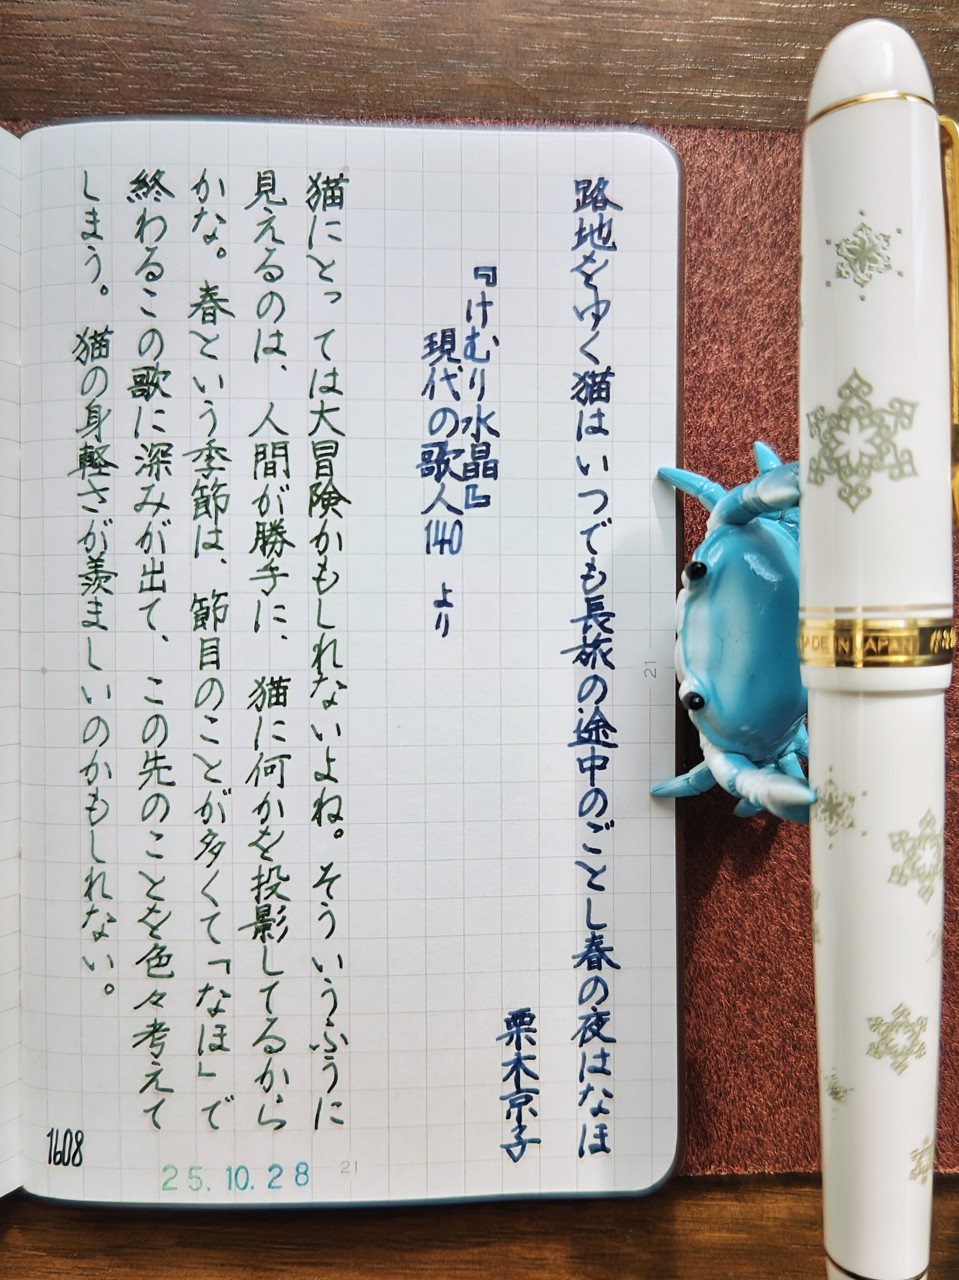 路地をゆく猫はいつでも長旅の途中のごとし春の夜はなほ
栗木京子
『けむり水晶』
現代の歌人140 より
猫にとっては大冒険かもしれないよね。そういうふうに
見えるのは、人間が勝手に、猫に何かを投影してるから
かな。春という季節は、節目のことが多くて「なほ」で
終わるこの歌に深みが出て、この先のことを色々考えて
しまう。猫の身軽さが羨ましいのかもしれない。
1608
25.10.28
21
21
MADE IN JAPAN